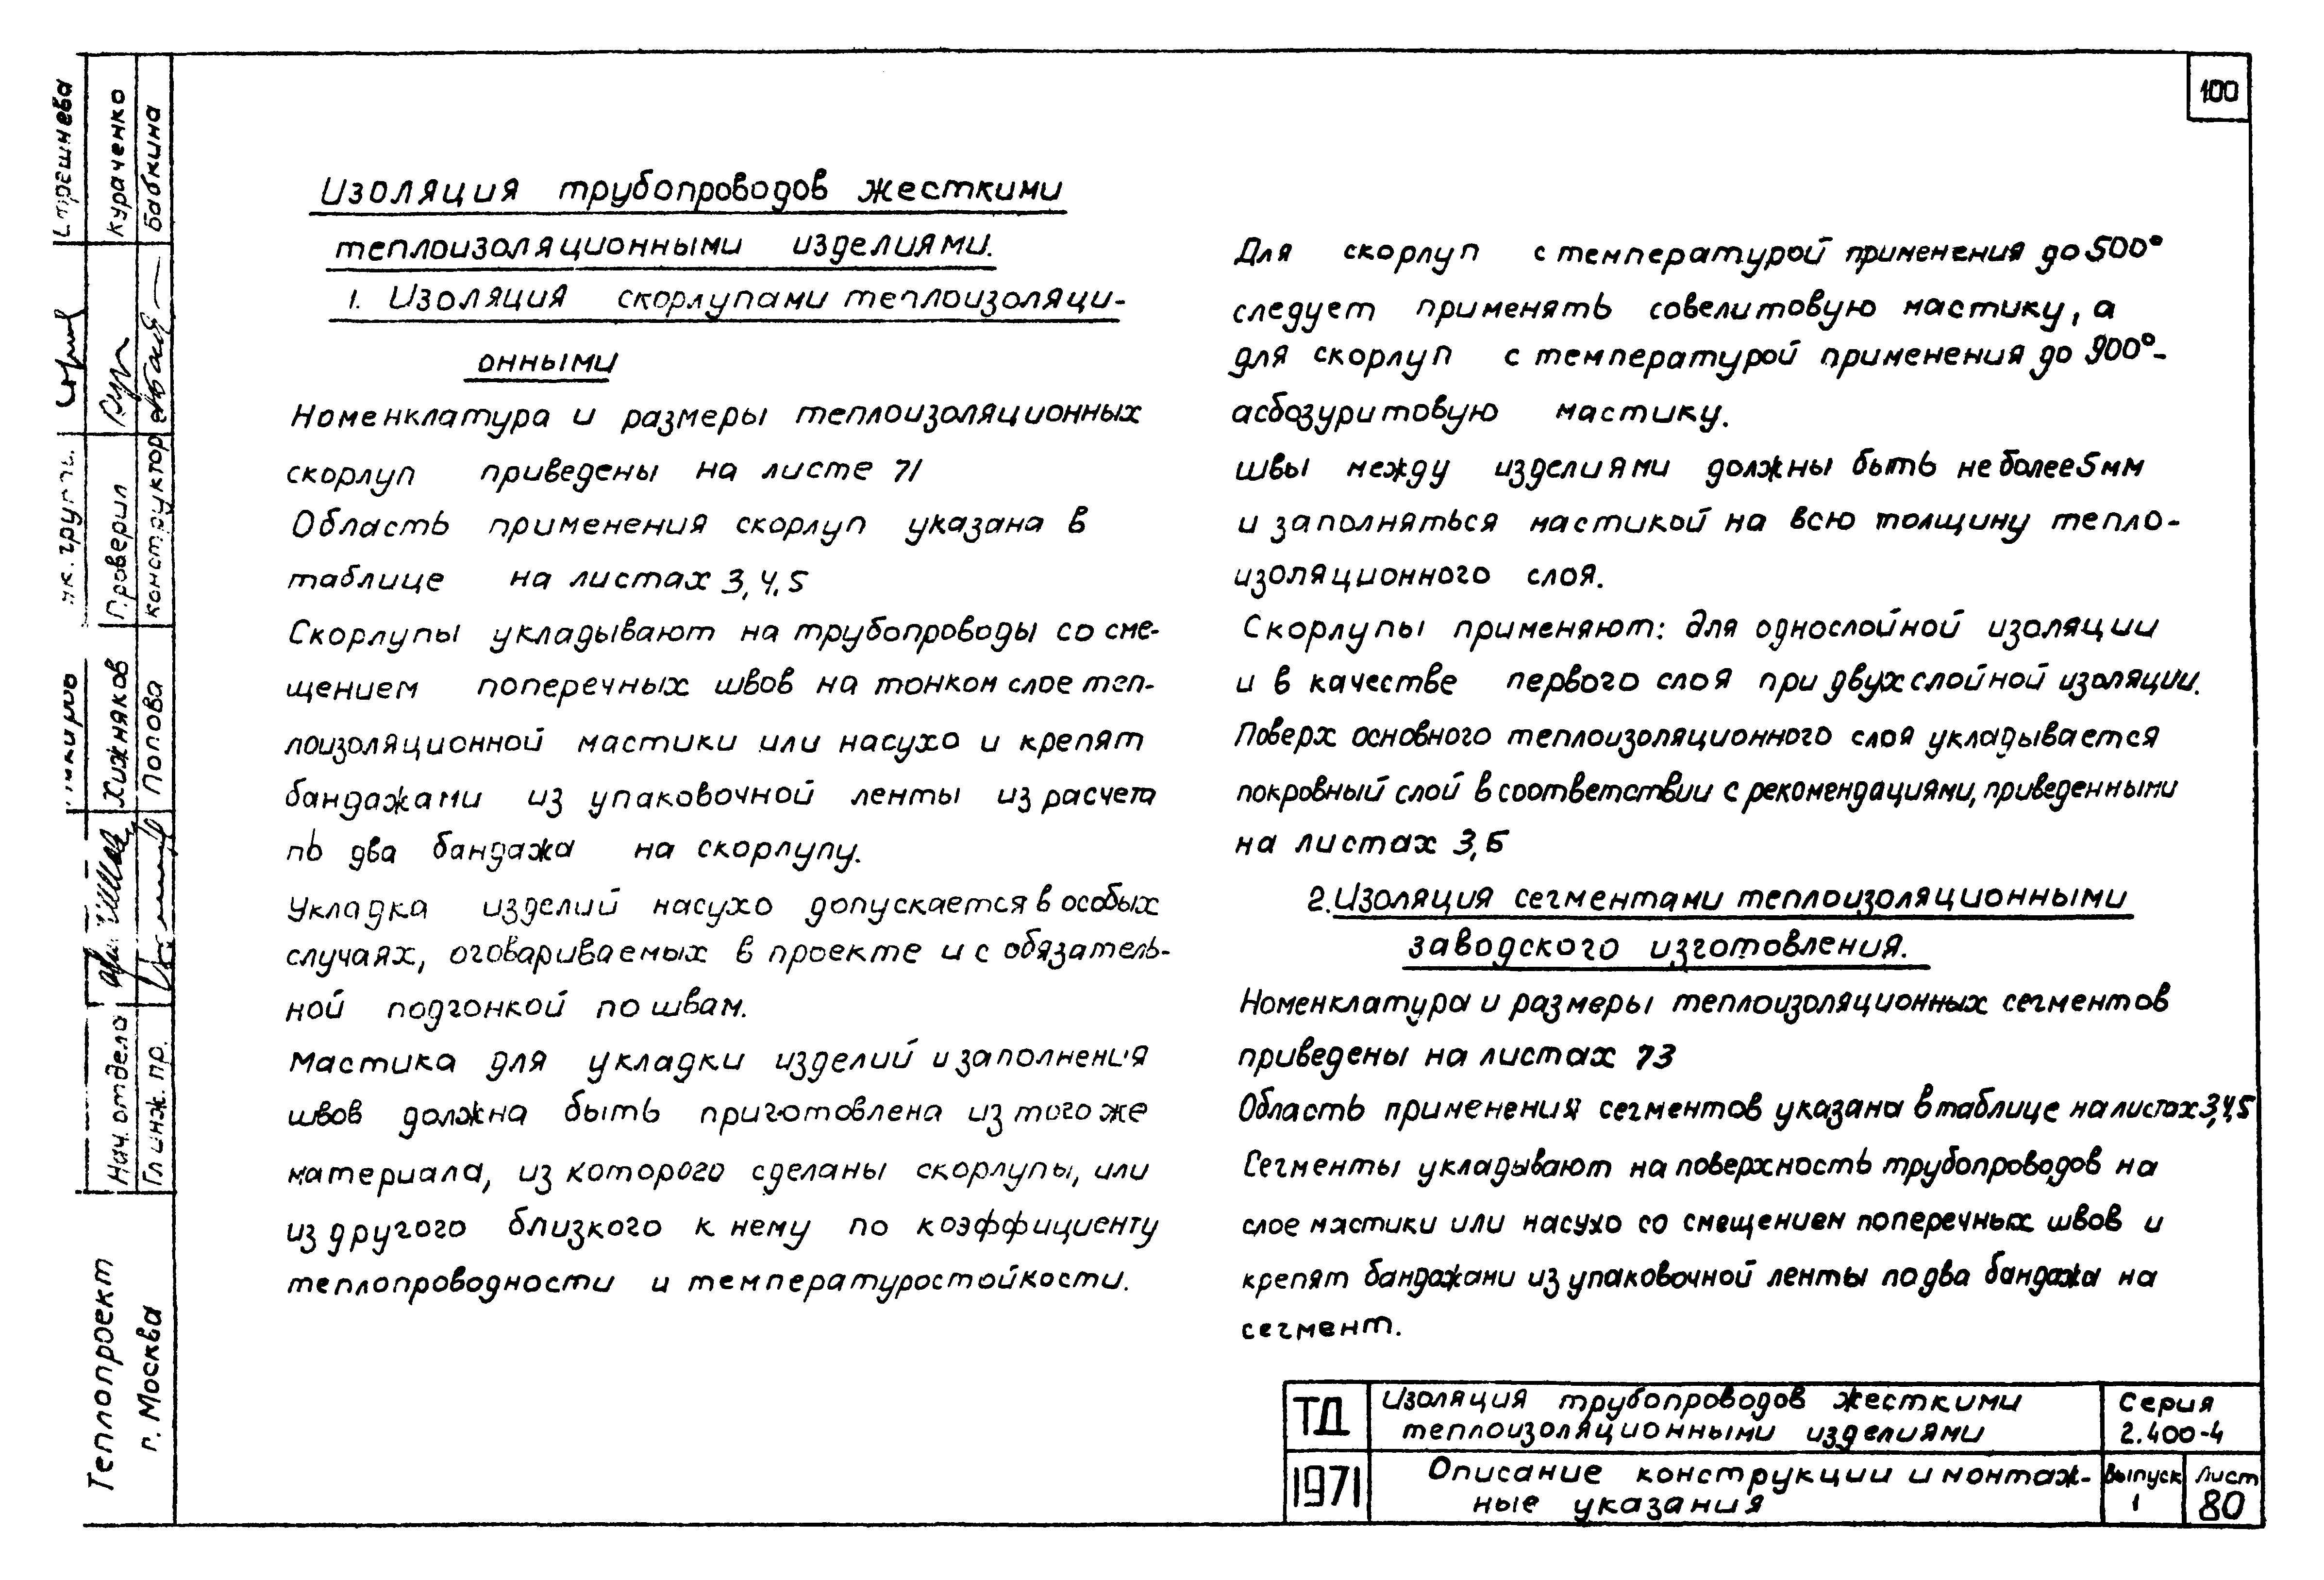 100
Изоляция трубопроводов жесткими
теплоизоляционными изделиями.
1. Изоляция скорлупами теплоизоляци-
онными
Номенклатура и размеры теплоизоляционных
скорлуп приведены на листе 71
Область применения скорлуп указана в
таблице на листах 3,4.5
Скорлупы укладывают на трубопроводы со сме-
щением поперечных швов на тонком слое теп-
лоизоляционной мастики или насухо и крепят
бандажами из упаковочной ленты из расчета
по два бандажа на скорлупу.
Укладка изделий насухо допускается в особых
случаях, оговариваемых в проекте и с обязатель-
ной подгонкой по швам.
Мастика для укладки изделий и заполнения
швов должна быть приготовлена из того же
материала, из которого сделаны скорлупы, или
из другого близкого к нему по коэффициенту
теплопроводности и температуростойкости.
Для скорлуп с температурой применения до 500°
следует применять совелитовую мастику, а
для скорлуп с температурой применения до 900°-
асбозуритовую мастику.
швы между изделиями должны быть не более 5 мм
и заполняться мастикой на всю толщину тепло-
изоляционного слоя.
Скорлупы применяют: для однослойной изоляции
и в качестве первого слоя при двухслойной изоляции.
Поверх основного теплоизоляционного слоя укладывается
покровный слой в соответствии с рекомендациями, приведенными
на листах 3,
2. Изоляция сегментами теплоизоляционными
заводского изготовления.
Номенклатура и размеры теплоизоляционных сегментов
приведены на листах 73
Область применения сегментов указана в таблице на листах 3,4,5
Сегменты укладывают на поверхность трубопроводов на
слое мастики или насухо со смещением поперечных швов и
крепят бандажами из упаковочной ленты по два бандажа на
сегмент.
ТД
1971
Изоляция трубопроводов жесткими
теплоизоляционными изделиями
Описание конструкции и монтаж-
ные указания
Серия
2.400-4
Выпуск
1
Лист
80
Стрешнева
Кураченко
Бабкина
Проверил
конструктор
Хижняков
Попова
Нач. отдела
Гл. инж. пр.
Теплопроект
г. Москва